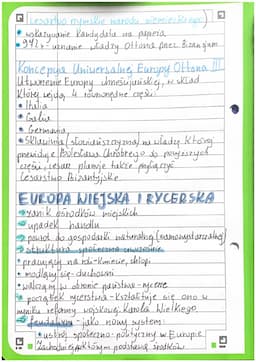 (cesarstwo rzymskie narodu niemieckiego)
• wskazywanie kandydata na papieża
• 972r - uznanie władzy Ottona przez Bizancjum
Koncepcja Uniwersalnej Europy Ottona III
Utworzenie Europy chrześcijańskiej, w skład
której wejdą 4 równorzędne części:
• Italia
• Galia
• Germania
• Sklawinia (słowiańszczyzna) na władcę której
przewiduje Bolesława Chrobrego do powyższych
części, cesarz planuje także przyłączyć
Cesarstwo Bizantyjskie
EUROPA WIEJSKA I RYCERSKA
→ zanik ośrodków miejskich
→ upadek handlu
→ powrót do gospodarki naturalnej (samowystarczalnej)
→ struktura społeczna
• pracujący na roli - kmiecie, chłopi
• modlący się - duchowni
• walczący w obronie państwa - rycerze
→ początek rycerstwa - kształtuje się ono w
wyniku reformy wojskowej Karola Wielkiego
→ feudalizm - jako nowy system:
• ustrój społeczno-polityczny w Europie
Zachodniej, którym podstawą